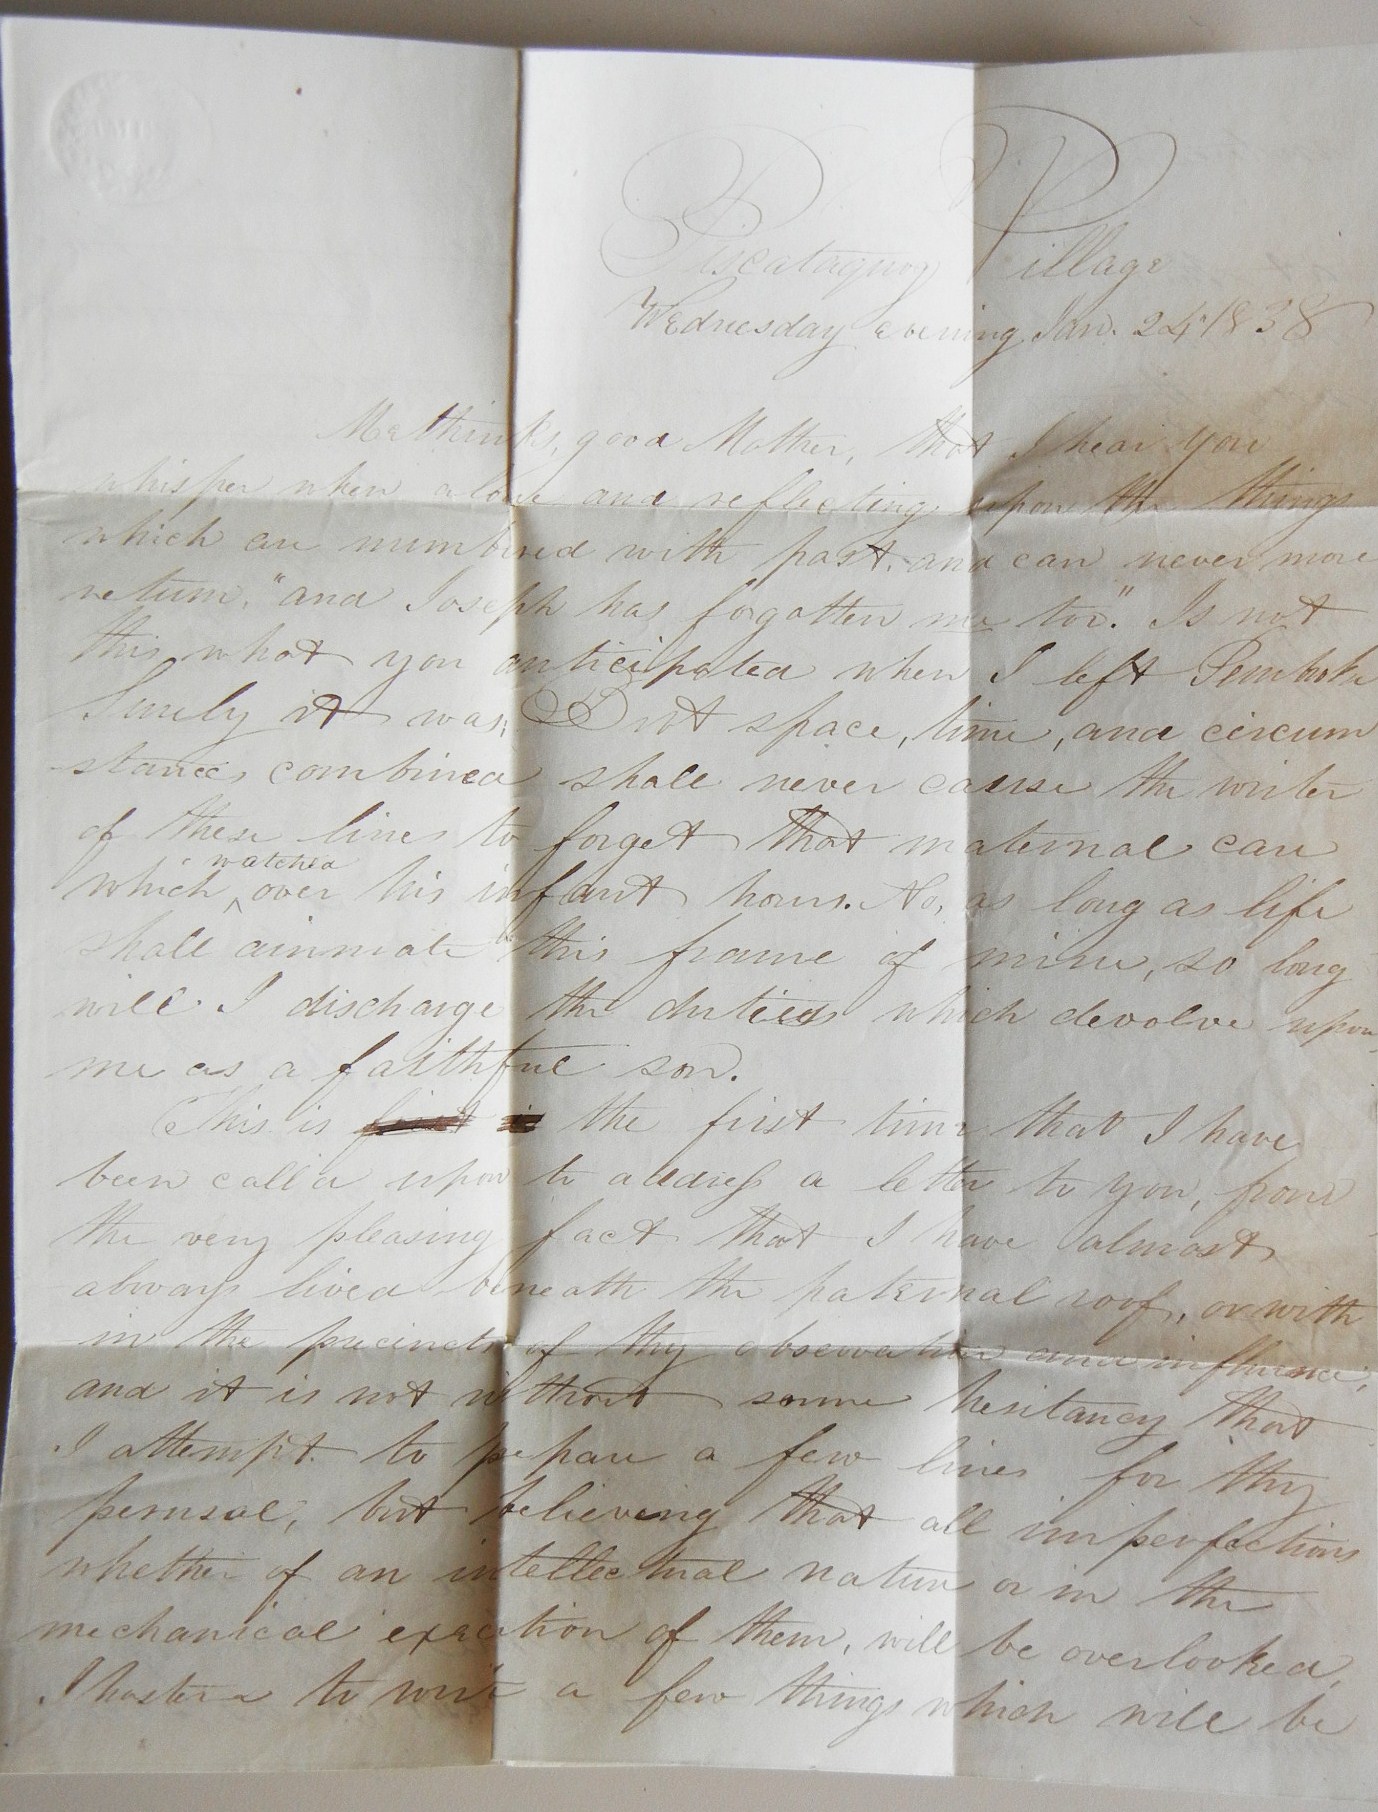 Piscataquog Village
Wednesday evening Jan. 24 1838
Methinks, good Mother, that I hear you
whisper when alone and reflecting upon the things
which are numbered with past, and can never more
return, "and Joseph has forgotten me too." Is not
this what you anticipated when I left Pembroke
Surely it was, But space, time, and circum
stances combined shall never cause the writer
of these lines to forget that maternal care
which watched over his infant hours. No, as long as life
shall ainmate this frame of mine, so long
will I discharge the duties which devolve upon
me as a faithful son.
This is first is the first time that I have
been call'd upon to address a letter to you, from
the very pleasing fact that I have almost
always lived beneath the paternal roof, or with
in the precincts of thy observation and influence,
and it is not without some hesitancy that
I attempt to prepare a few lines for thy
perusal, but believing that all imperfections
whether of an intellectual nature or in the
mechanical execution of them, will be overlooked,
I hasten to write a few things which will be